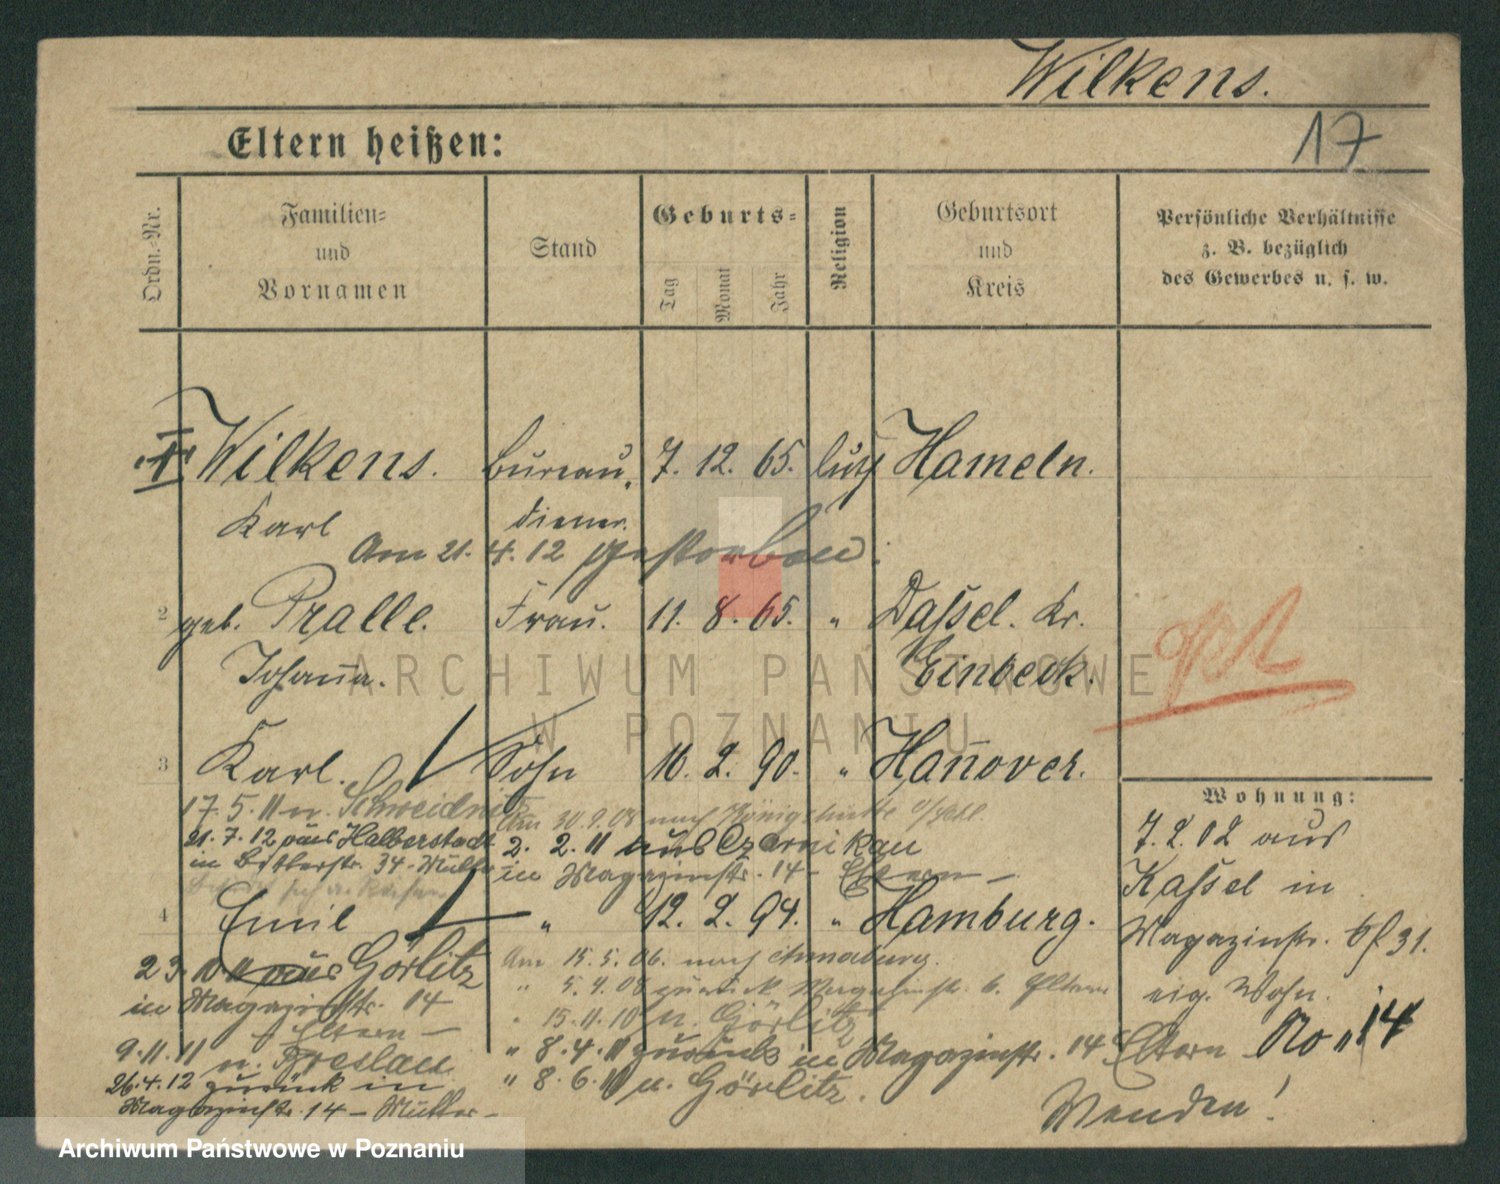 Wilkens.
17
Eltern heißen:
Ordn.-Nr.
Familien-
und
Vornamen
Stand
Geburts-
Tag
Monat
Jahr
Religion
Geburtsort
und
Kreis
Persönliche Verhältnisse
z. B. bezüglich
des Gewerbes u. s. w.
Wilkens. Bureau- 7. 12. 65. luth Hameln.
Karl diener.
Am 21. 4. 12 gestorben.
2 geb. Pralle. Frau. 11. 8. 65. " Dassel. Kr.
Johanna. Einbeck.
3 Karl. Sohn 10. 2. 90. " Hannover.
17. 5. 11 n. Schweidnitz
Am 30.9.08 nach Königshütte
21. 7. 12 aus Halberstadt
2. 2. 11 aus Czarnikau
in 34 - Mutter
in Magazinstr. 14 - Eltern -
4 Emil " 12. 2. 94. " Hamburg.
23. 10 11 aus Görlitz
in Magazinstr. 14
Eltern -
9. 11. 11 n. Breslau
26. 4. 12 zurück in
Magazinstr. 14 - Mutter -
Am 15. 5. 06. nach Annaburg.
" 5. 9. 08 zurück Magazinstr. 6. Eltern
" 15. 11. 10 n. Görlitz
" 8. 4. 11 zurück in Magazinstr. 14 Eltern
" 8. 6. 11 n. Görlitz.
Wohnung:
7. 2. 02 aus
Kassel in
Magazinstr. 31.
eig. Wohn.
No " 14
Wenden!
ARCHIWUM PAŃSTWOWE
W POZNANIU
Archiwum Państwowe w Poznaniu